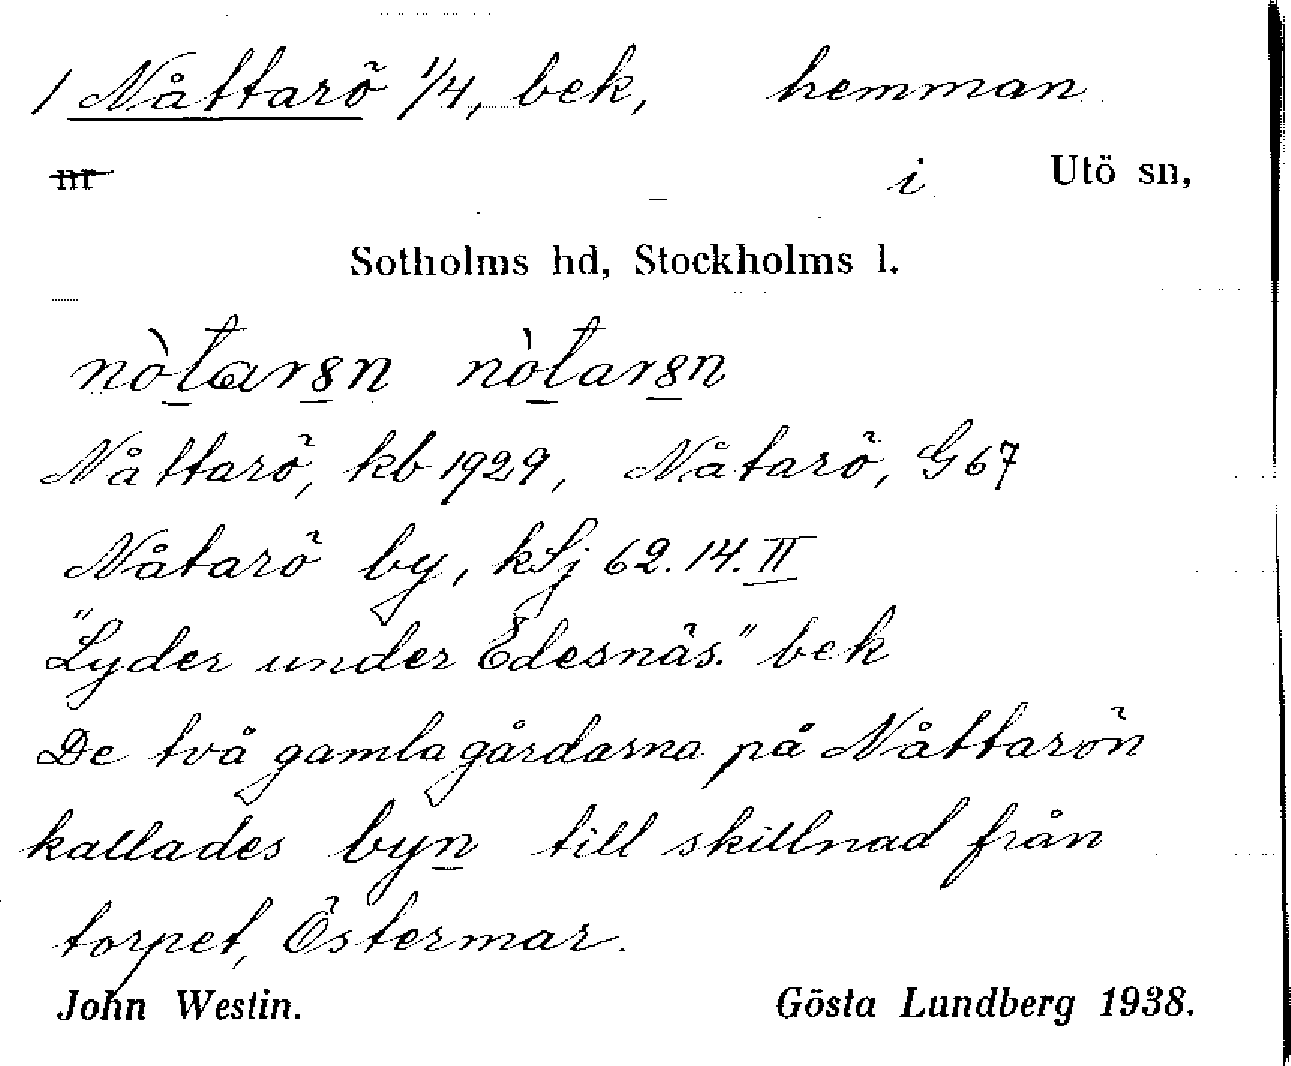 1 Nåttarö 1/4, bek, hemman
nr i Utö sn,
Sotholms hd, Stockholms l.
nò̱tar8̱n nò̱tar8̱n
Nåttarö, kb 1929, Nåtarö, G 67
Nåtarö by, kSj 62.14.II
"Lyder under Edesnäs." bek
De två gamla gårdarna på Nåttarön
kallades byn till skillnad från
torpet, Östermar.
John Westin. Gösta Lundberg 1938.